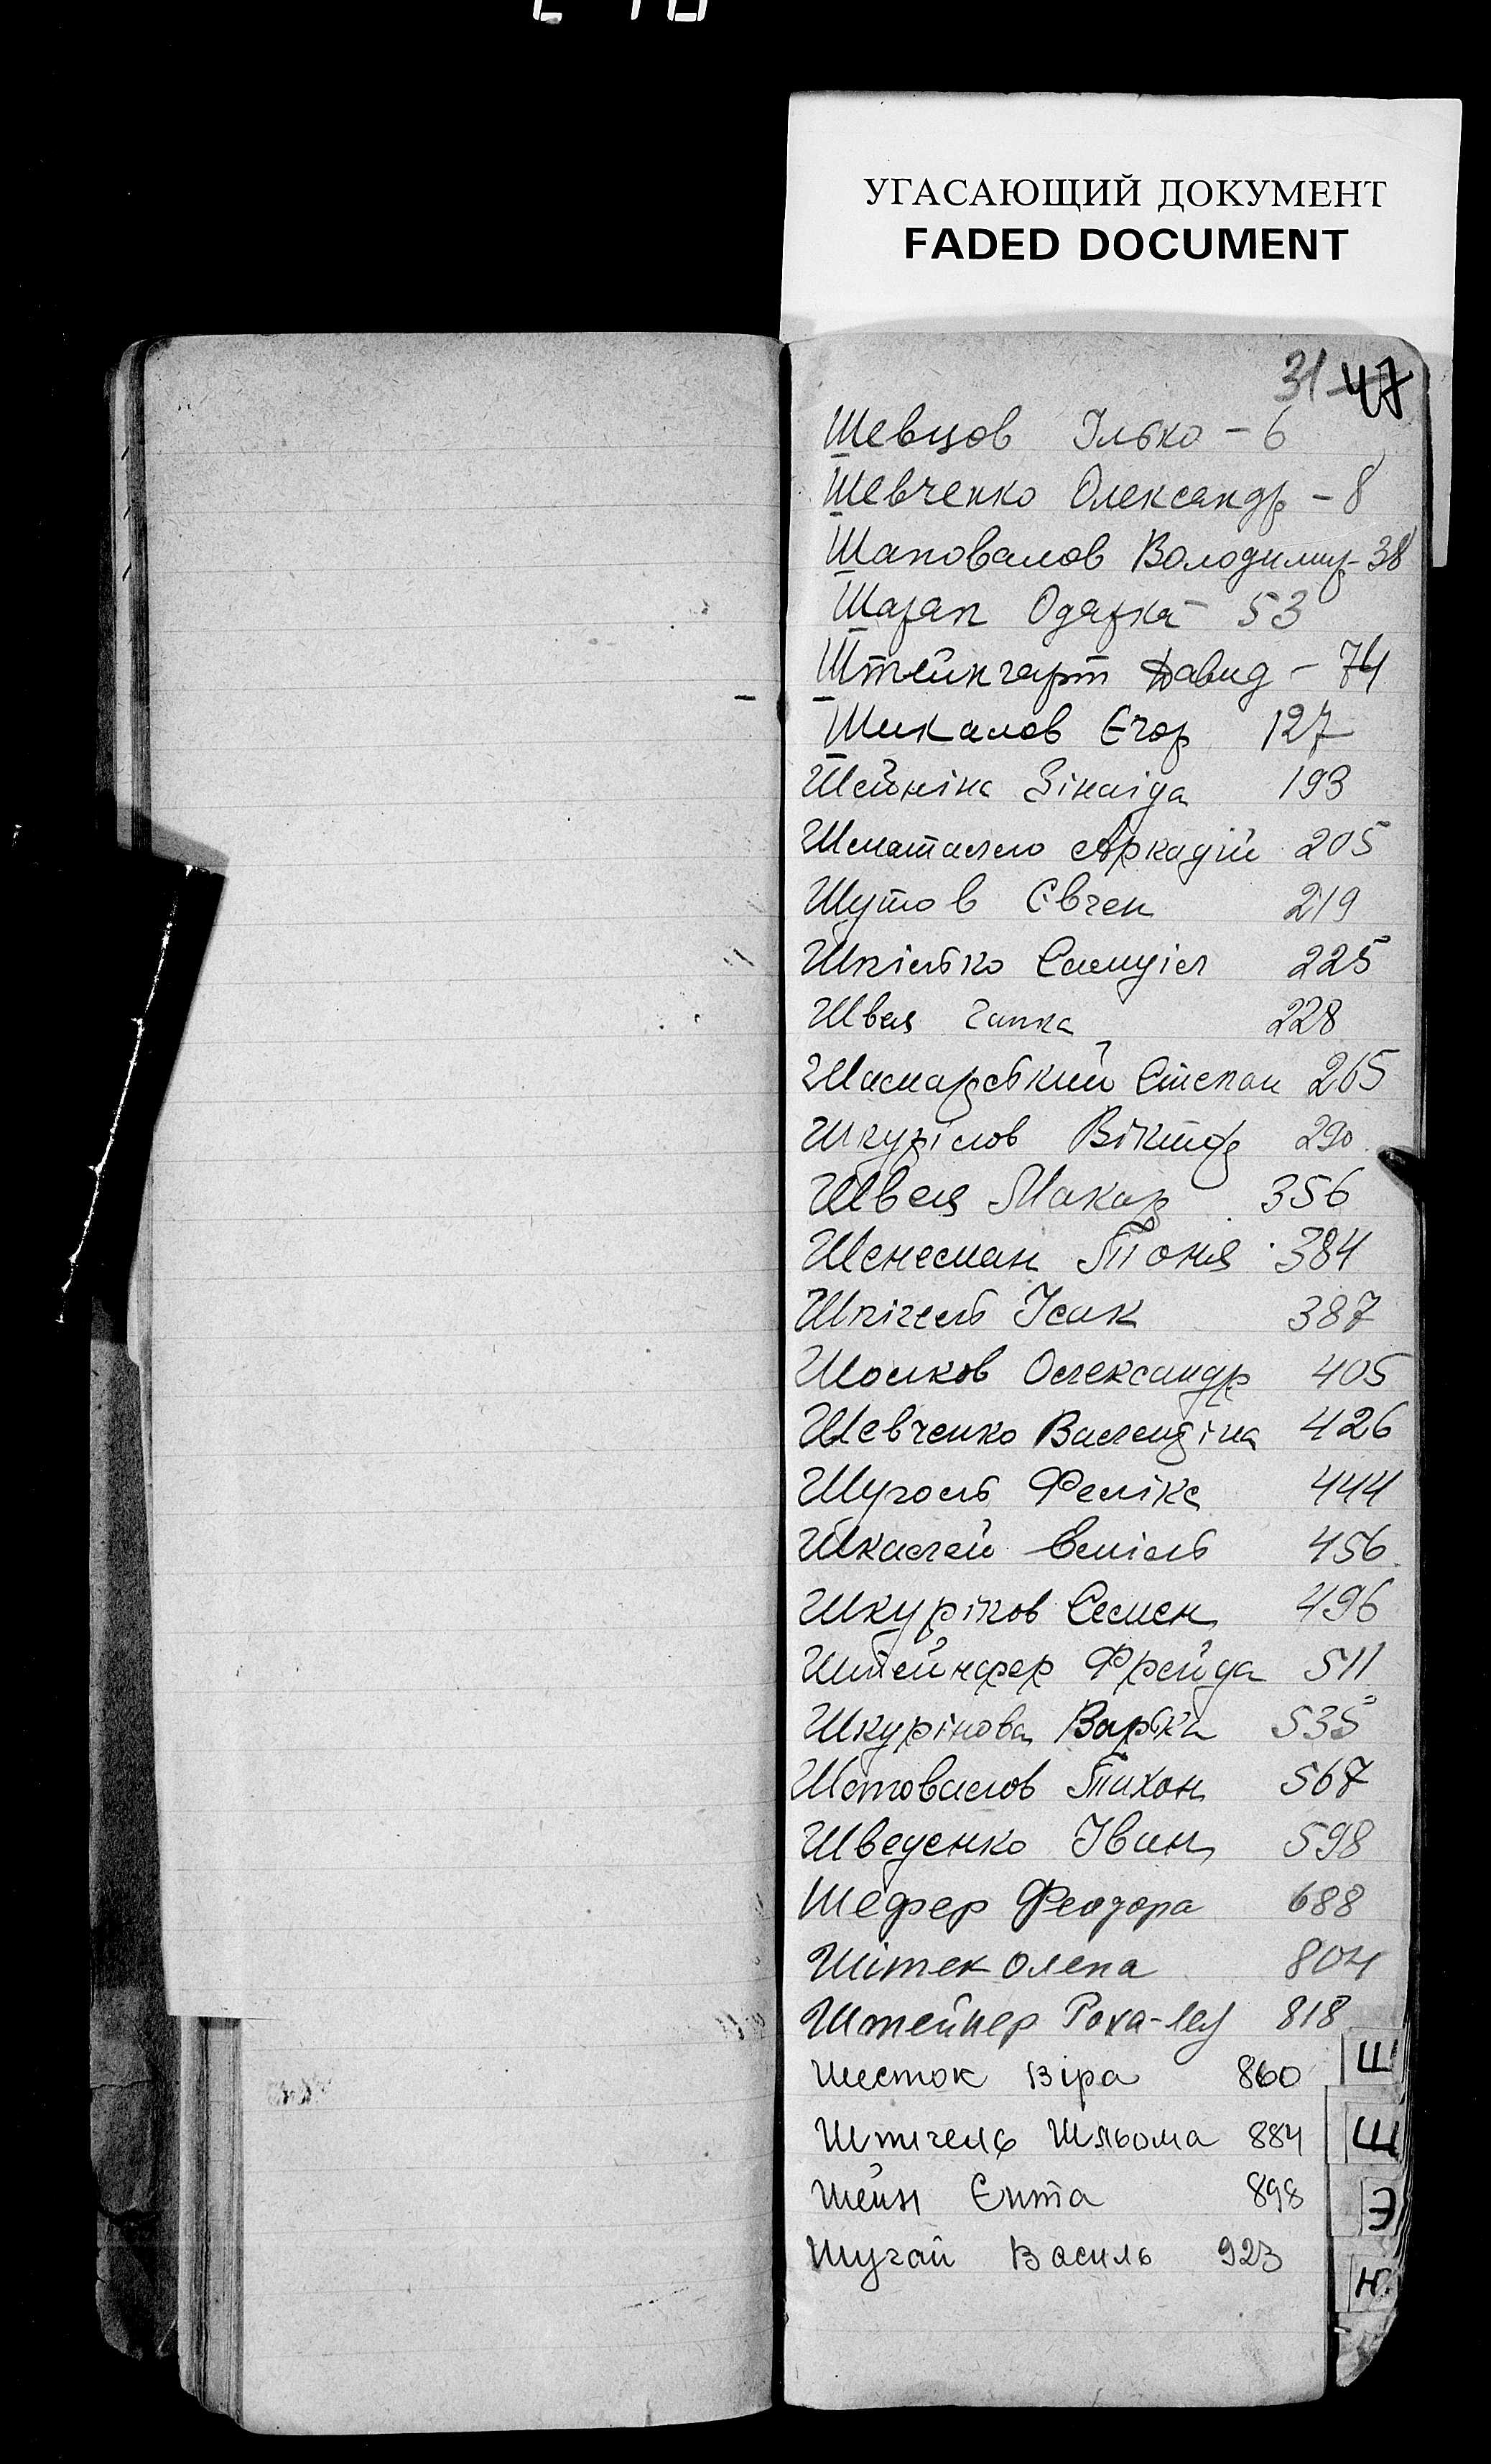 УГАСАЮЩИЙ ДОКУМЕНТ
FADED DOCUMENT
31 47
Шевцов Ілько - 6
Шевченко Олександр - 8
Шаповалов Володимир - 38
Шаран Одарка - 53
Штейнгарт Давид - 74
Шикалов Єгор 127
Шейніна Зінаіда 193
Шматалло Аркадій 205
Шутов Євген 219
Шпілько Самуіл 225
Швая Ганна 228
Шамарський Степан 265
Шкурілов Віктор 290
Швая Макар 356
Шенеман Тоня 384
Шпігель Ісак 387
Шолков Олександр 405
Шевченко Валендіна 426
Шуголь Фелікс 444
Шкалей Еміль 456
Шкурінов Семен 496
Штейнфер Фрейда 511
Шкурінова Варька 535
Шаповалов Тихон 567
Шведенко Іван 598
Шефер Феодора 688
Шітек Олена 804
Штейнер 818
Шесток Віра 860
Шпигель Шльома 884
Шейн Ента 898
Шугай Василь 923
Ш
Щ
Э
Ю